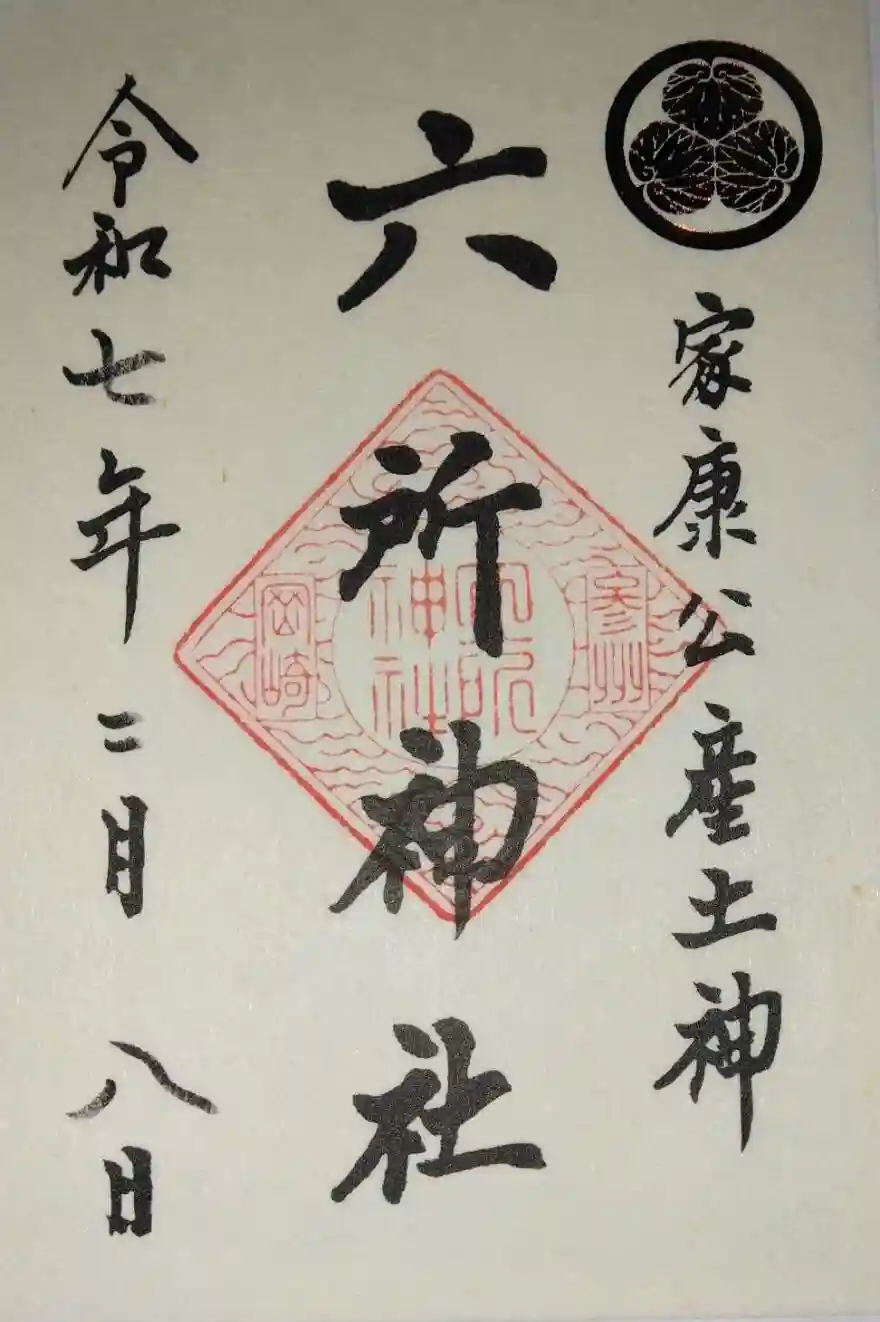 家康公産土神
六所神社
令和七年二月八日
参州
六所
神社
岡崎